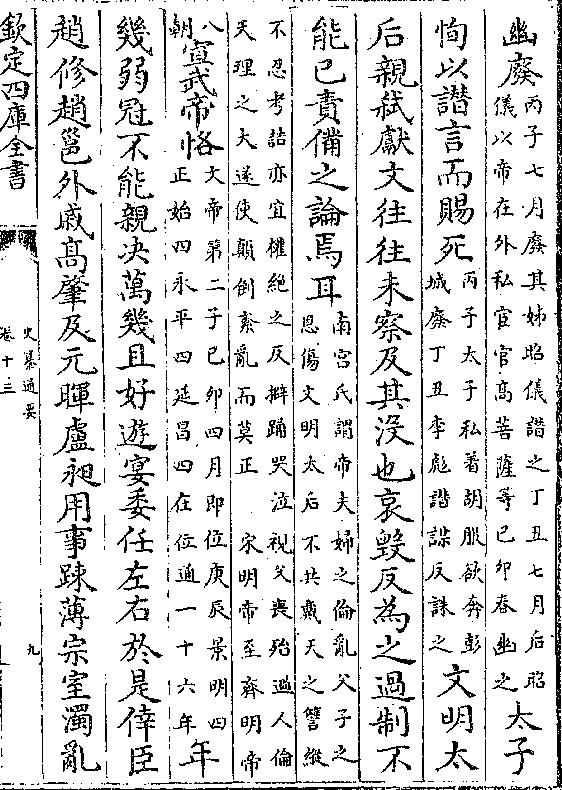 幽廢丙子七月廢其姊昭儀譖之丁丑七月后昭
儀以帝在外私宦官高菩薩等已卯春幽之太子
恂以譖言而賜死丙子太子私着胡服欲奔彭
城廢丁丑李彪譖謀反誅之文明太
后親弑獻文往往未察及其没也哀毀反為之過制不
能已責備之論焉耳南宫氏謂帝夫婦之倫亂父子之
恩傷文明太后不共戴天之讐縱
不忍考詰亦宜權絶之反擗踊哭泣視父喪殆過人倫
天理之大遂使顛倒紊亂而莫正 宋明帝至齊明帝
八朝宣武帝恪文帝第二子已卯四月即位庚辰景明四
正始四永平四延昌四在位通一十六年年
幾弱冠不能親决萬幾且好遊宴委任左右於是倖臣
趙修趙邕外戚高肇及元暉盧昶用事踈薄宗室濁亂
欽定四庫全書
史纂通要
卷十三
九